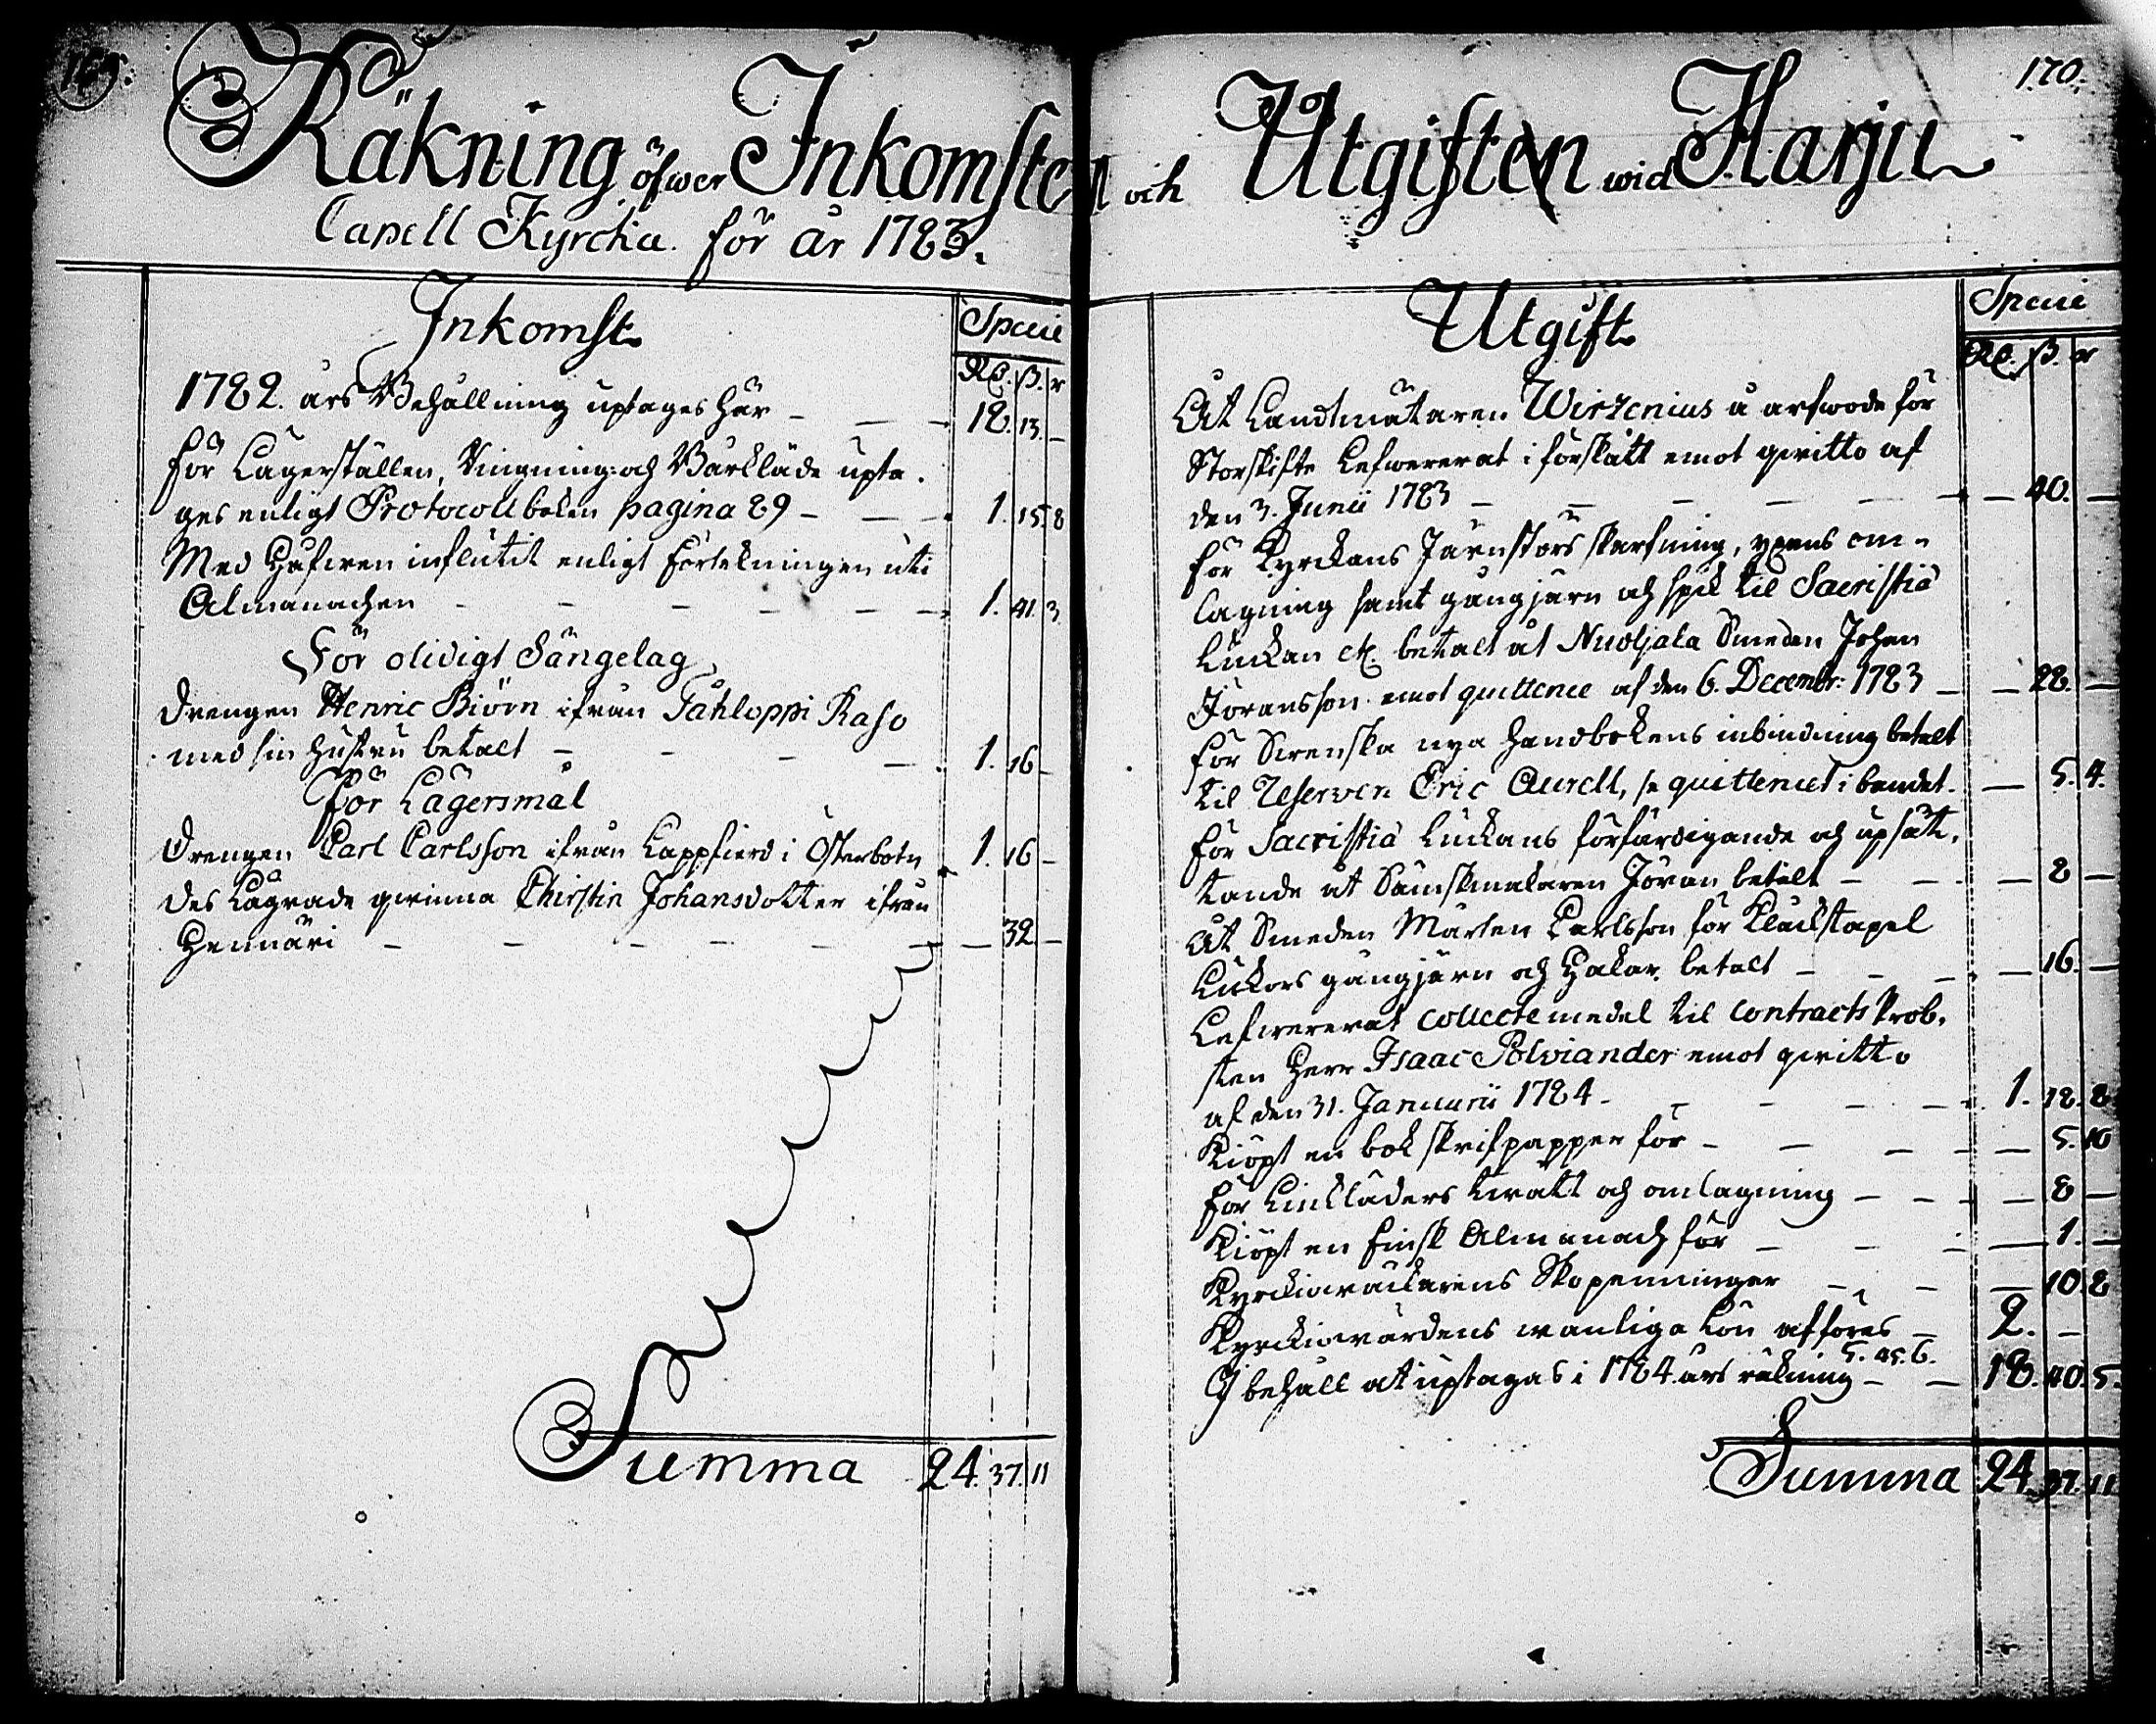 169.
Räkning öfwer Inkomsten och Utgiften wid Harju
Capell Kyrcka för år 1783.
Inkomst
Specie
Rd. ß. r
1782 års Behållning uptages här — 18. 13. —
För Lägerställen, Ringning och Bårkläde upta-
ges enligt Protocollsboken pagina 89 — 1. 15. 8
Med Håfwen influtit enligt förtekningen uti
Almanachen — 1. 41. 3
För olidigt Sängelag
Drengen Henric Biörn ifrån Tåhloppi Raso
med sin hustru betalt — 1. 16 —
För Lägersmål
Drengen Carl Carlsson ifrån Lappfierd i Österbotn 1. 16 —
Des Lägrade qwinna Christin Johansdotter ifrån
Hennäri — — 32 —
Summa 24. 37. 11
170.
Utgift
Specie
Rd. ß. r
Åt Landtmätaren Wirzenius å arfwode för
Storskifte Lefwererat i förskått emot qwitto af
den 3. Junii 1783 — — 40. —
För Kyrckans Järnstörs skarfning, yxens om-
lagning samt gångjärn och spik til Sacristiæ
Luckan etc. betalt åt Nuoljala Smeden Johan
Jöransson emot quittence af den 6. Decembr: 1783 — — 28. —
För Swenska nya handbokens inbindning betalt
til Reserven Eric Aurell, se quittencet i bandet. — 5. 4.
För Sacristiæ Luckans förfärdigande och upsät-
tande åt Sämskmakaren Jöran betalt — — 8 —
Åt Smeden Mårten Carlsson för Klåckstapel
Luckors gångjärn och Hakar betalt — — 16. —
Lefwererat collecte medel til Contracts Prob-
sten Herr Isaac Polviander emot qwitto
af den 31. Januarii 1784 — 1. 18. 8
Kiöpt en bok skrifpapper för — — 5. 10
För Linkläders twätt och omlagning — — 8 —
Kiöpt en Finsk Almanach för — — 1. —
Kyrckiowäcktarens Skopenningar — — 10. 8
Kyrckiowärdens wanliga Lön afföres — 2. —
5. 45. 6.
I behåll at uptagas i 1784 års räkning — 18. 40. 5.
Summa 24. 37. 11